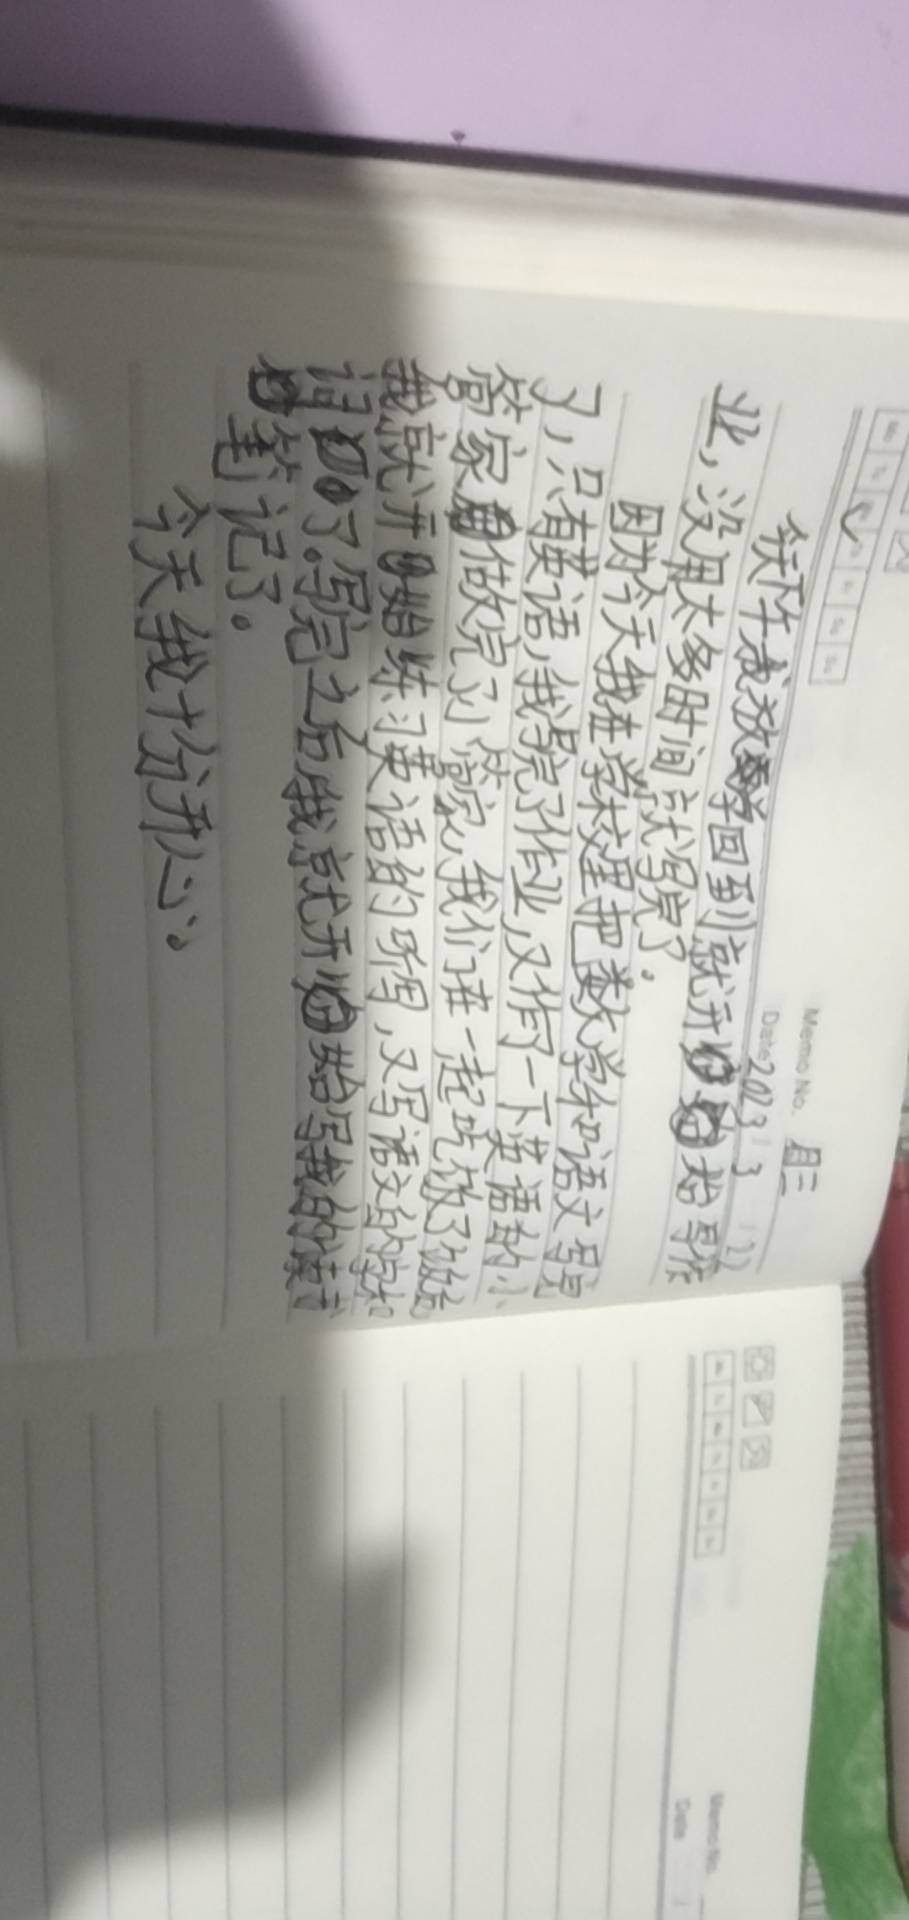 Memo No. 周三
Date 2023 3 2
今天下午我放学回到就开始写作
业，没用太多时间就写完了。
因为今天我在学校里把数学和语文写完
了，只有英语，我写完了作业，又作了一下英语的小
管家做完了小管家，我们在一起吃饭了饭后
我就开始练习英语的听写，又写语文的字和
词了。写完之后我就开始写我的读书
笔记了。
今天我十分开心。
Memo No.
Date